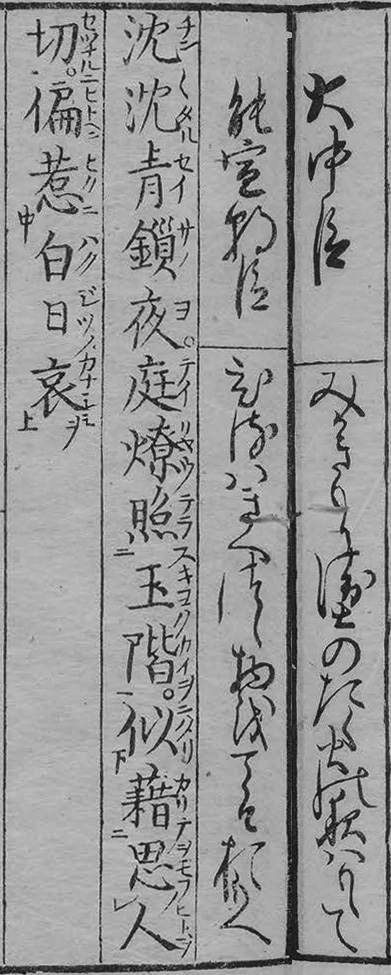 大中臣 みかきもり衛士のたく火の夜はもえて
能宣朝臣 ひるはきえつゝ物をこそおもへ
沈沈青鎖夜。庭燎照玉階。似藉思人
切。偏惹白日哀